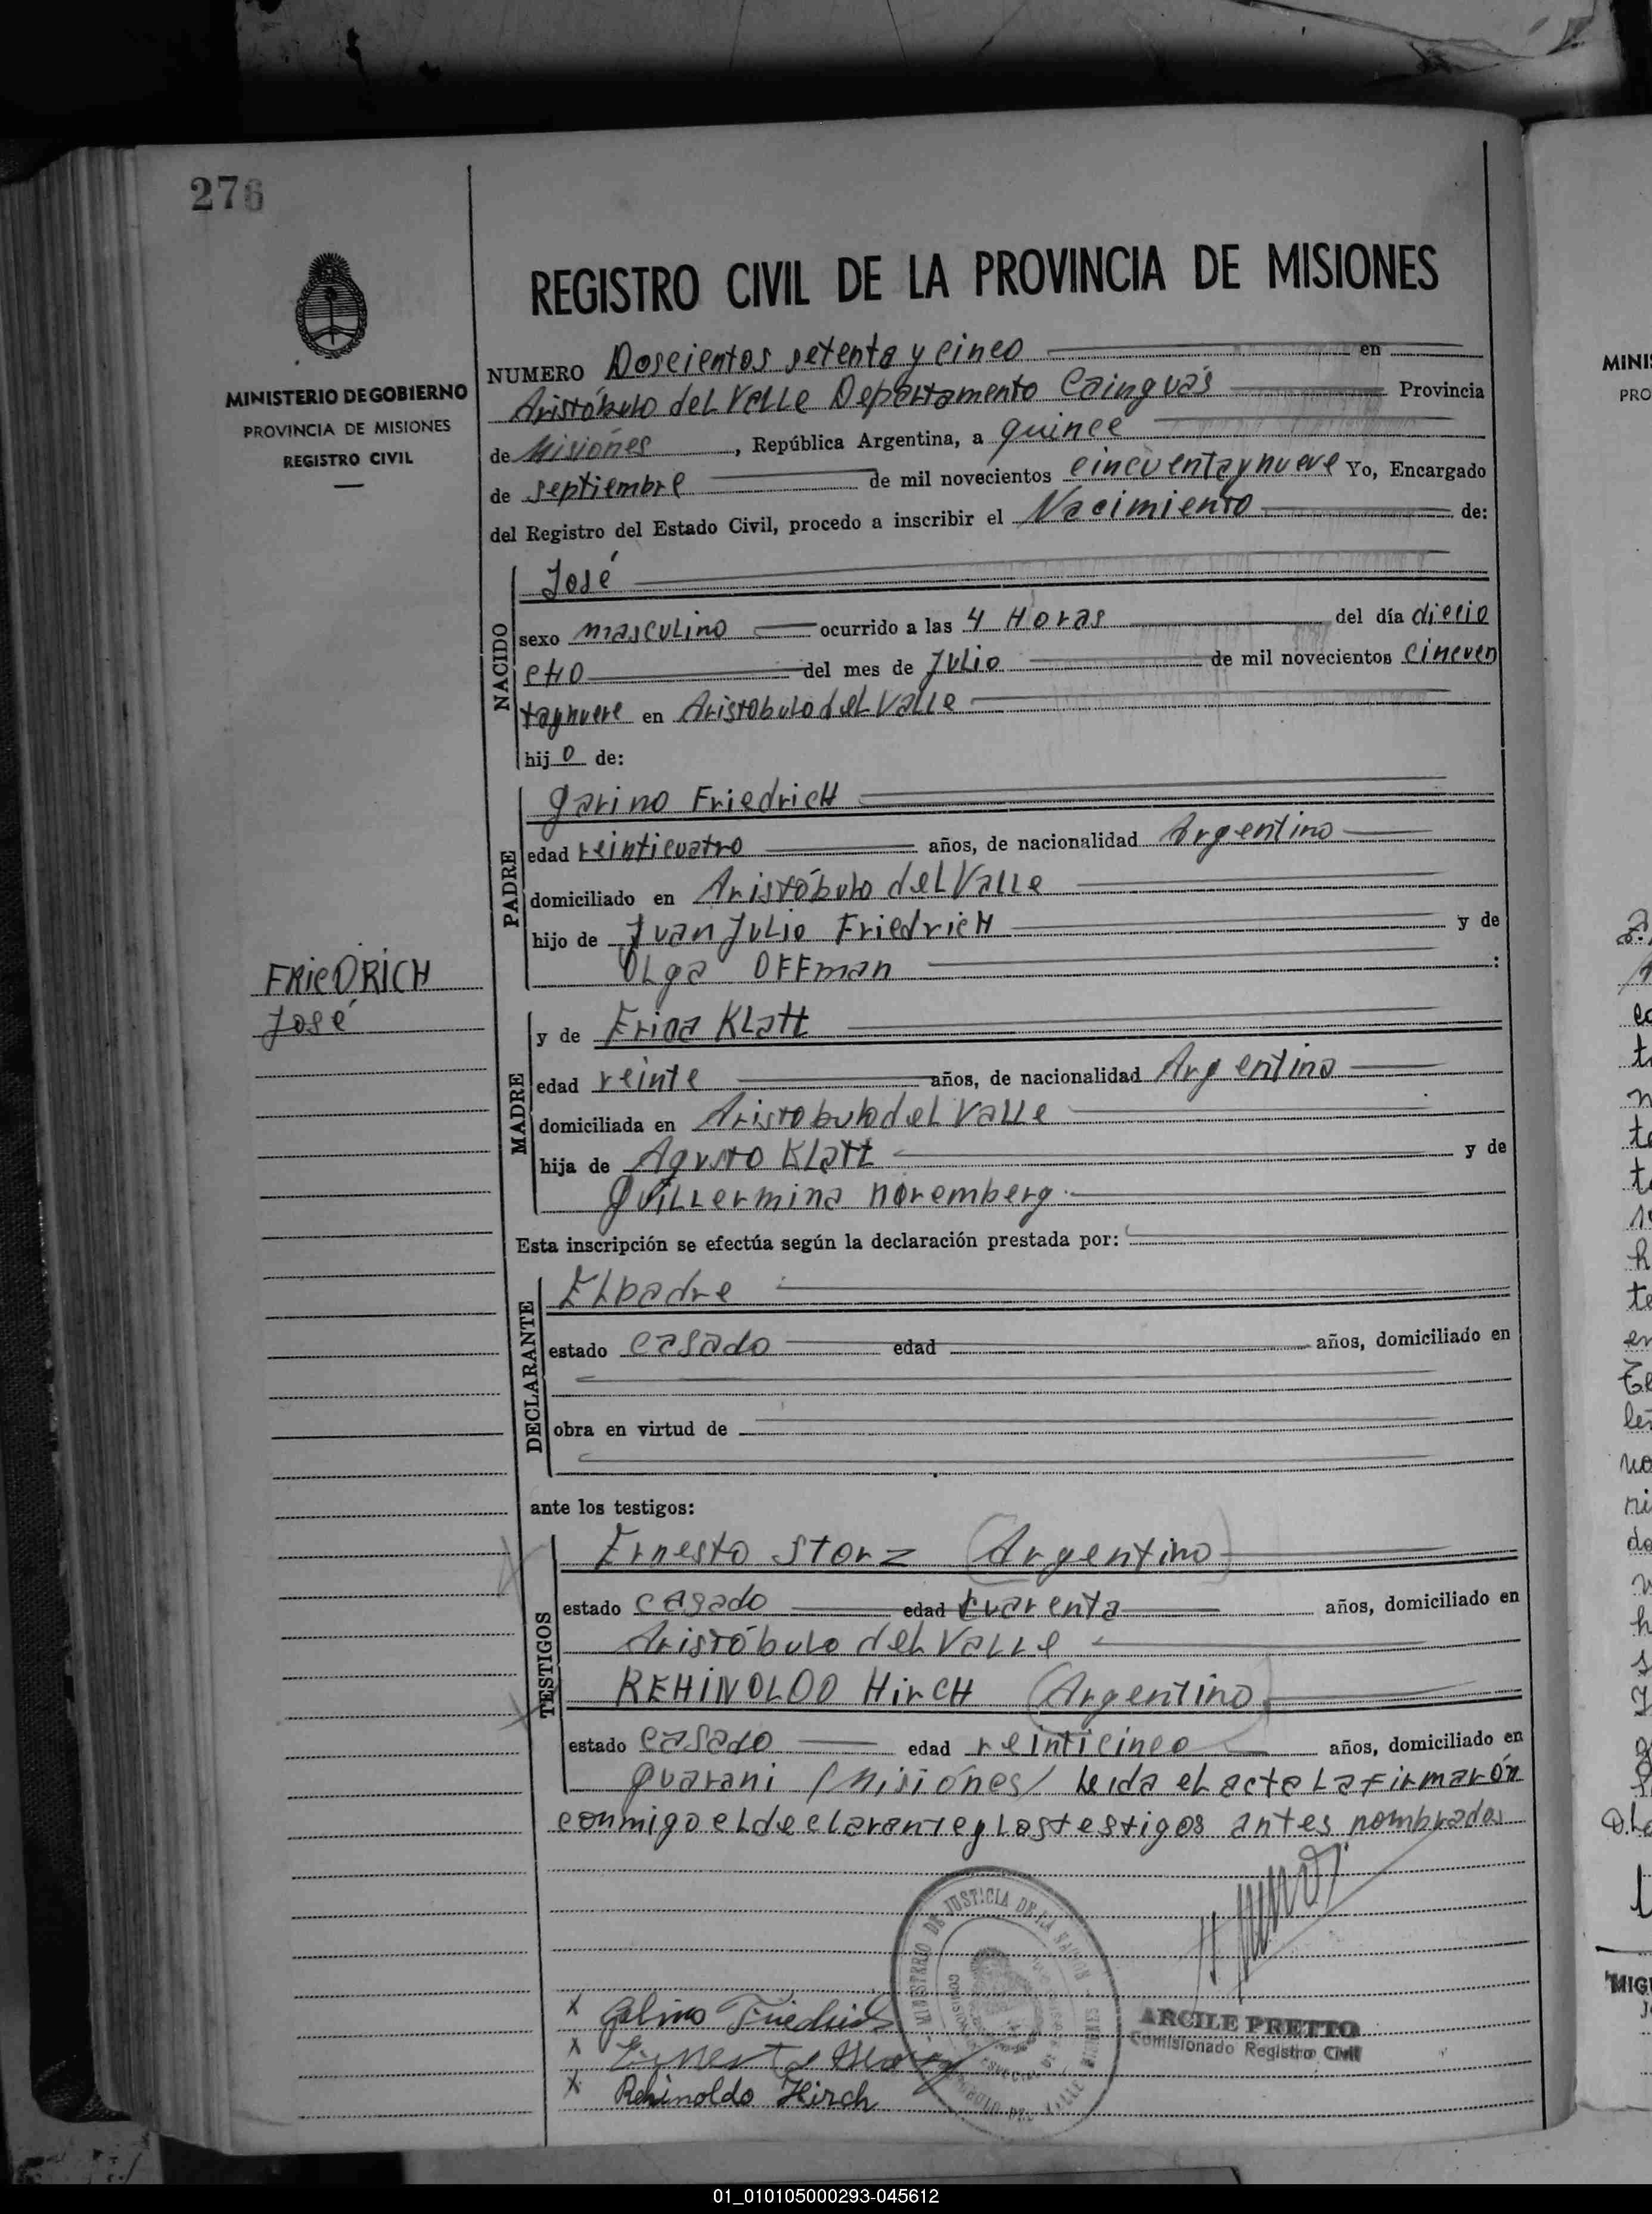 276
REGISTRO CIVIL DE LA PROVINCIA DE MISIONES
MINISTERIO DE GOBIERNO
PROVINCIA DE MISIONES
REGISTRO CIVIL
NUMERO Doscientos setenta y cinco en
Aristóbulo del Valle Departamento Cainguás Provincia
de Misiónes, República Argentina, a quince
de septiembre de mil novecientos cincuentaynueve Yo, Encargado
del Registro del Estado Civil, procedo a inscribir el Nacimiento de:
NACIDO
José
sexo masculino ocurrido a las 4 Horas del día diecio
cho del mes de Julio de mil novecientos cincuen
taynueve en Aristobulo del Valle
hijo de:
PADRE
Garino Friedrich
edad veinticuatro años, de nacionalidad Argentino
domiciliado en Aristóbulo del Valle
hijo de Juan Julio Friedrich y de
Olga Offman :
FRIEDRICH
José
MADRE
y de Erina Klatt
edad veinte años, de nacionalidad Argentina
domiciliada en Aristobulo del Valle
hija de Agusto Klatt y de
Guillermina Noremberg
Esta inscripción se efectúa según la declaración prestada por:
DECLARANTE
El padre
estado casado edad años, domiciliado en
obra en virtud de
ante los testigos:
TESTIGOS
Ernesto Storz (Argentino)
estado casado edad cuarenta años, domiciliado en
Aristóbulo del Valle
REHINOLDO HIrCH (Argentino)
estado casado edad veinticinco años, domiciliado en
Guarani (Misiónes) Leida el acta La firmarón
conmigo el declarante y Los testigos antes nombrados
MINISTERIO DE JUSTICIA DE LA NACION
ARCILE PRETTO
Comisionado Registro Civil
x Galino Friedrich
x Ernesto Storz
x Rehinoldo Hirch
01_010105000293-045612